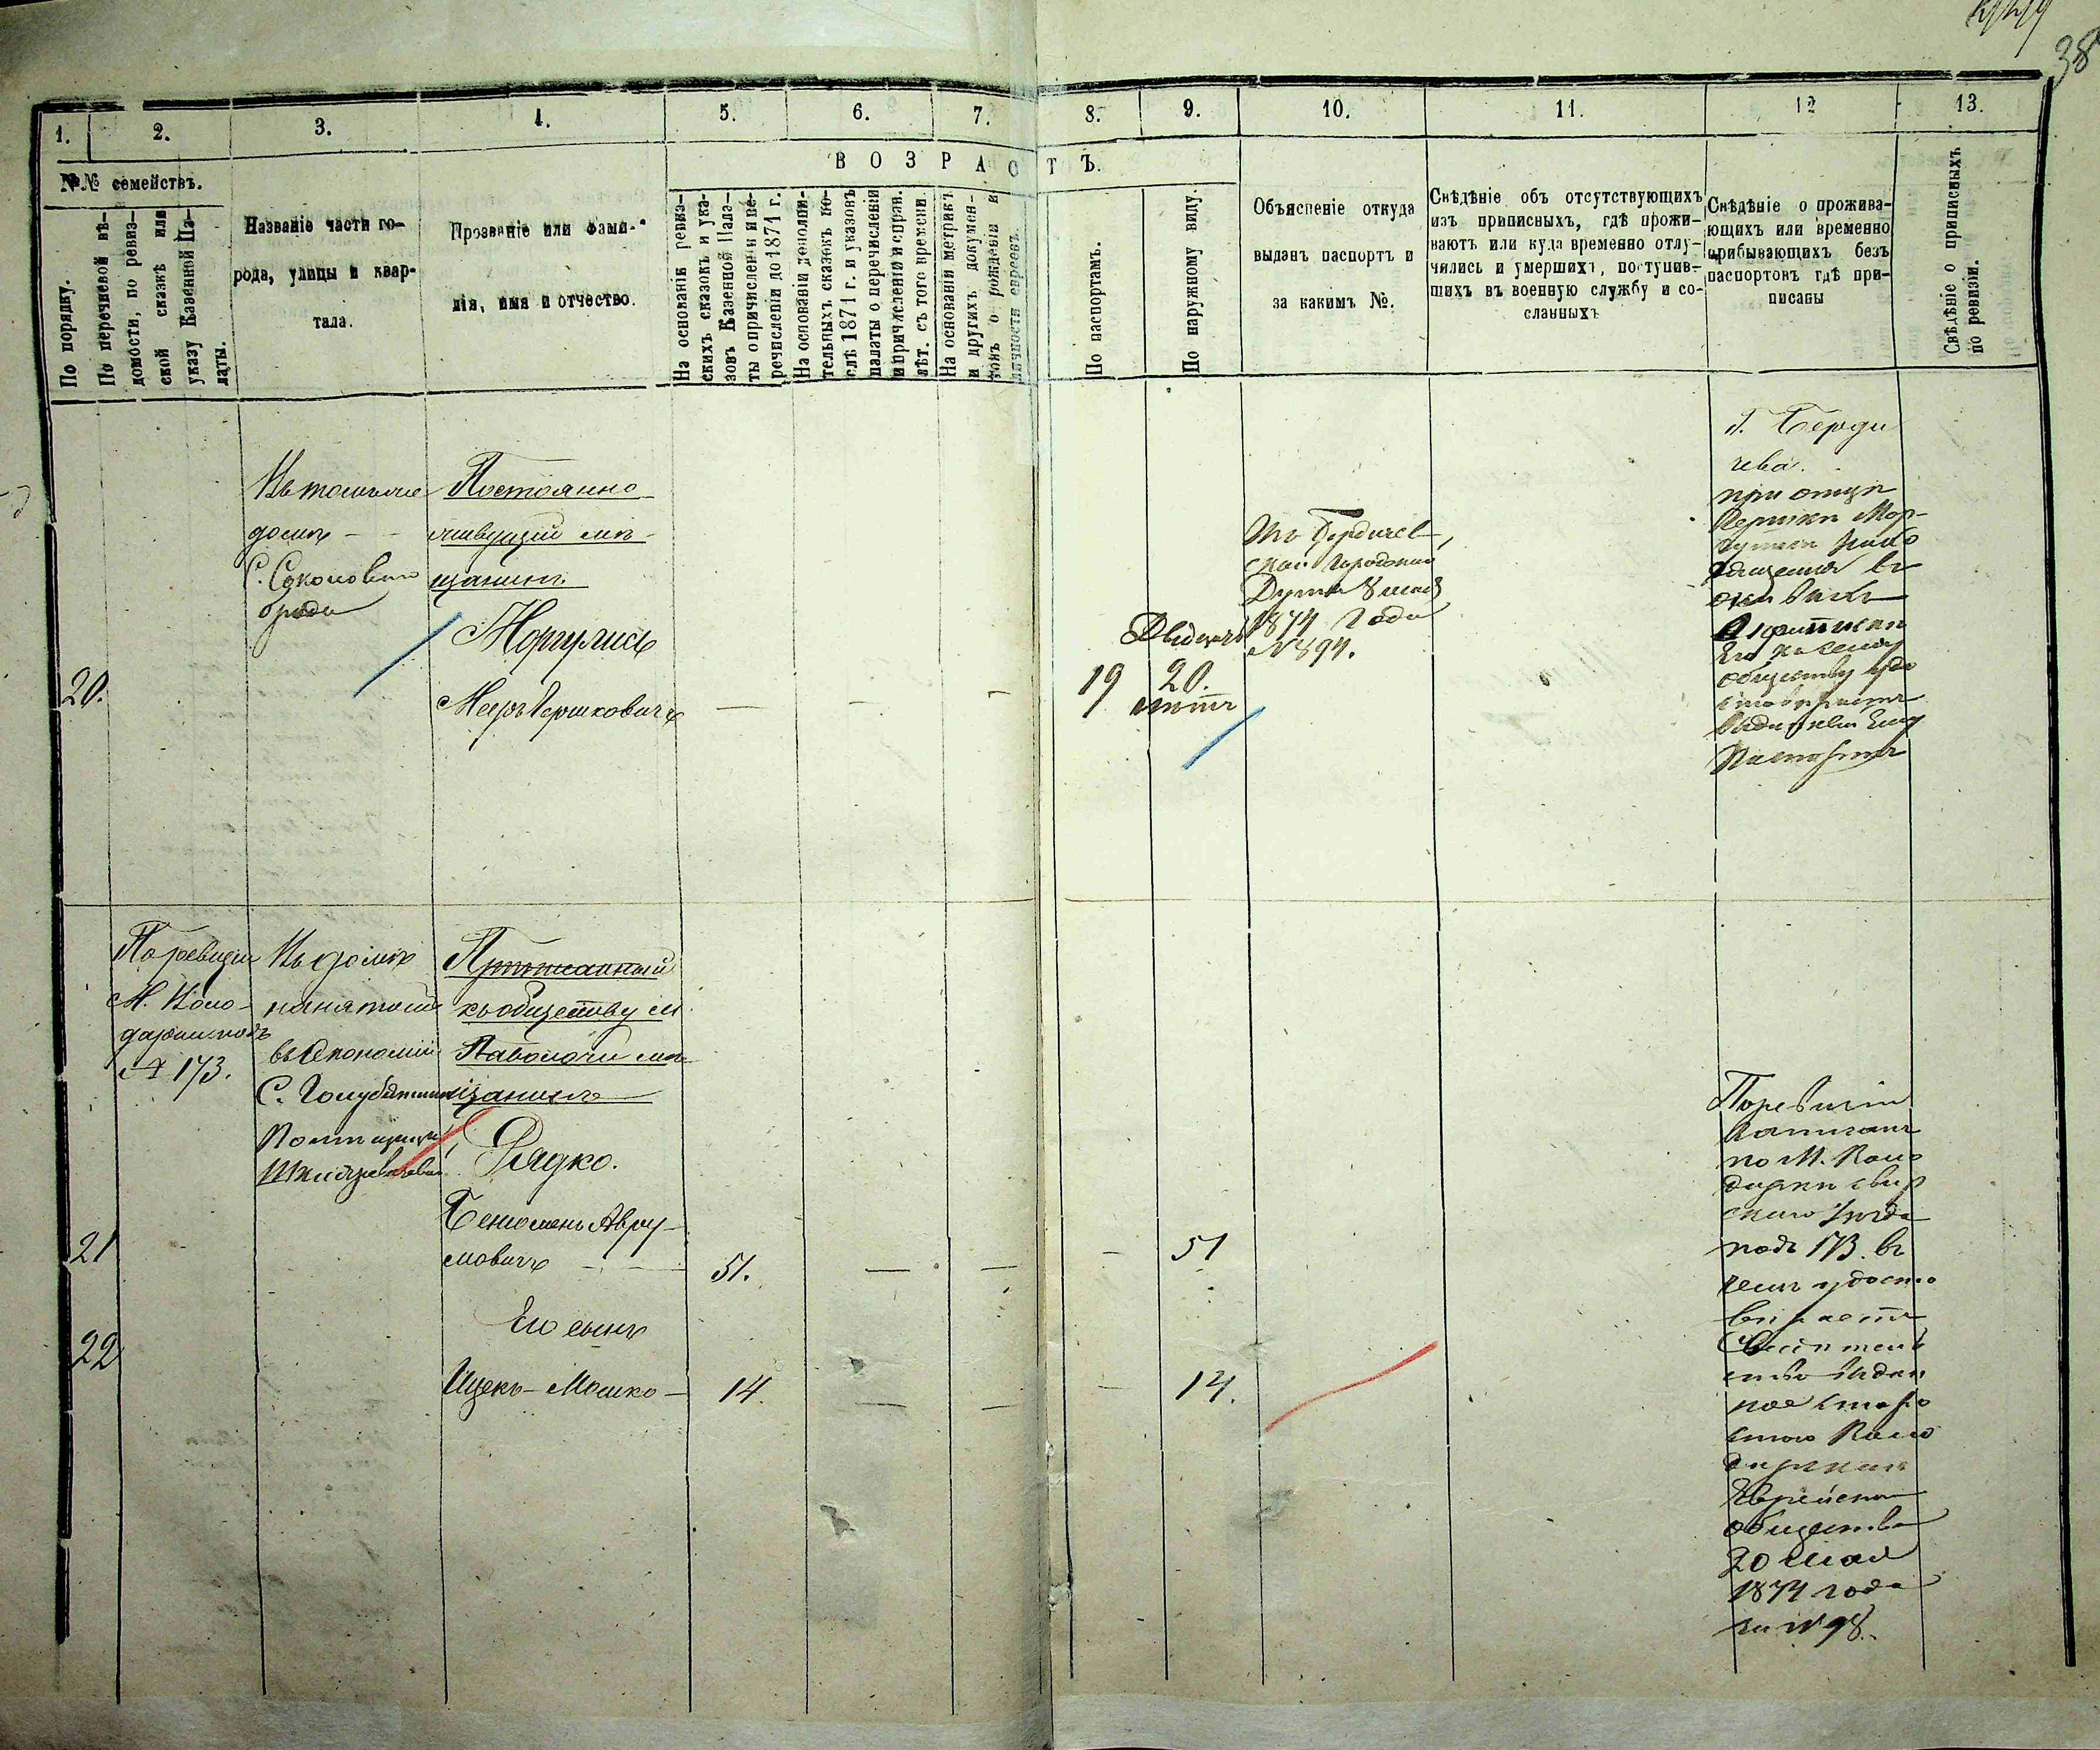 38
1.
2.
3.
4.
5.
6.
7.
8.
9.
10.
11.
12
13.
ВОЗРАСТЪ.
№№ семействъ.
По порядку.
По перечневой вѣ-
домости, по ревиз-
ской сказкѣ или
указу Казенной Па-
латы.
Названіе части го-
рода, улицы и квар-
тала.
Прозваніе или фами-
лія, имя и отчество.
На основаніи ревиз-
скихъ сказокъ и ука-
зовъ Казенной Пала-
ты о причисленіи и пе-
речисленіи до 1871 г.
На основаніи дополни-
тельныхъ сказокъ по-
слѣ 1871 г. и указовъ
палаты о перечисленіи
и причисленіи и справ.
лѣт. съ того времени.
На основаніи метрикъ
и другихъ докумен-
товъ о рожденіи и
личности евреевъ.
По паспортамъ.
По наружному виду.
Объясненіе откуда
выданъ паспортъ и
за какимъ №.
Свѣдѣніе объ отсутствующихъ
изъ приписныхъ, гдѣ прожи-
ваютъ или куда временно отлу-
чились и умершихъ, поступив-
шихъ въ военную службу и со-
сланныхъ
Свѣдѣніе о прожива-
ющихъ или временно
прибывающихъ безъ
паспортовъ гдѣ при-
писаны
Свѣдѣніе о приписныхъ
по ревизіи.
20.
домѣ
С.
Постоянно
живущій мѣ-
щанинъ
Моргулисъ
Мееръ Гершковичъ
19
Двадцать
20.
лѣтъ
Изъ Бердичев-
ской Городской
Думы 8 мая
1874 Года
№ 894.
г. Берди
чева.
при отцѣ
Гершкѣ Мор-
гулисѣ
обществу
Паспортъ
По ревизіи
М. Коло-
№ 173.
Въ домѣ
нанятомъ
въ Экономіи
С. Голубятина
Приписанный
къ обществу м.
Паволочи мѣ-
щанинъ
Рядко.
21
Беніоминъ Авру-
мовичъ
51.
51
22
Его сынъ
Ицекъ-Мошко
14.
14.
По ревизіи
записанъ
по М. Коло
уѣзда
подъ 173. въ
чемъ удосто
вѣряетъ
Еврейскаго
общества
20 мая
1874 года
за № 98.